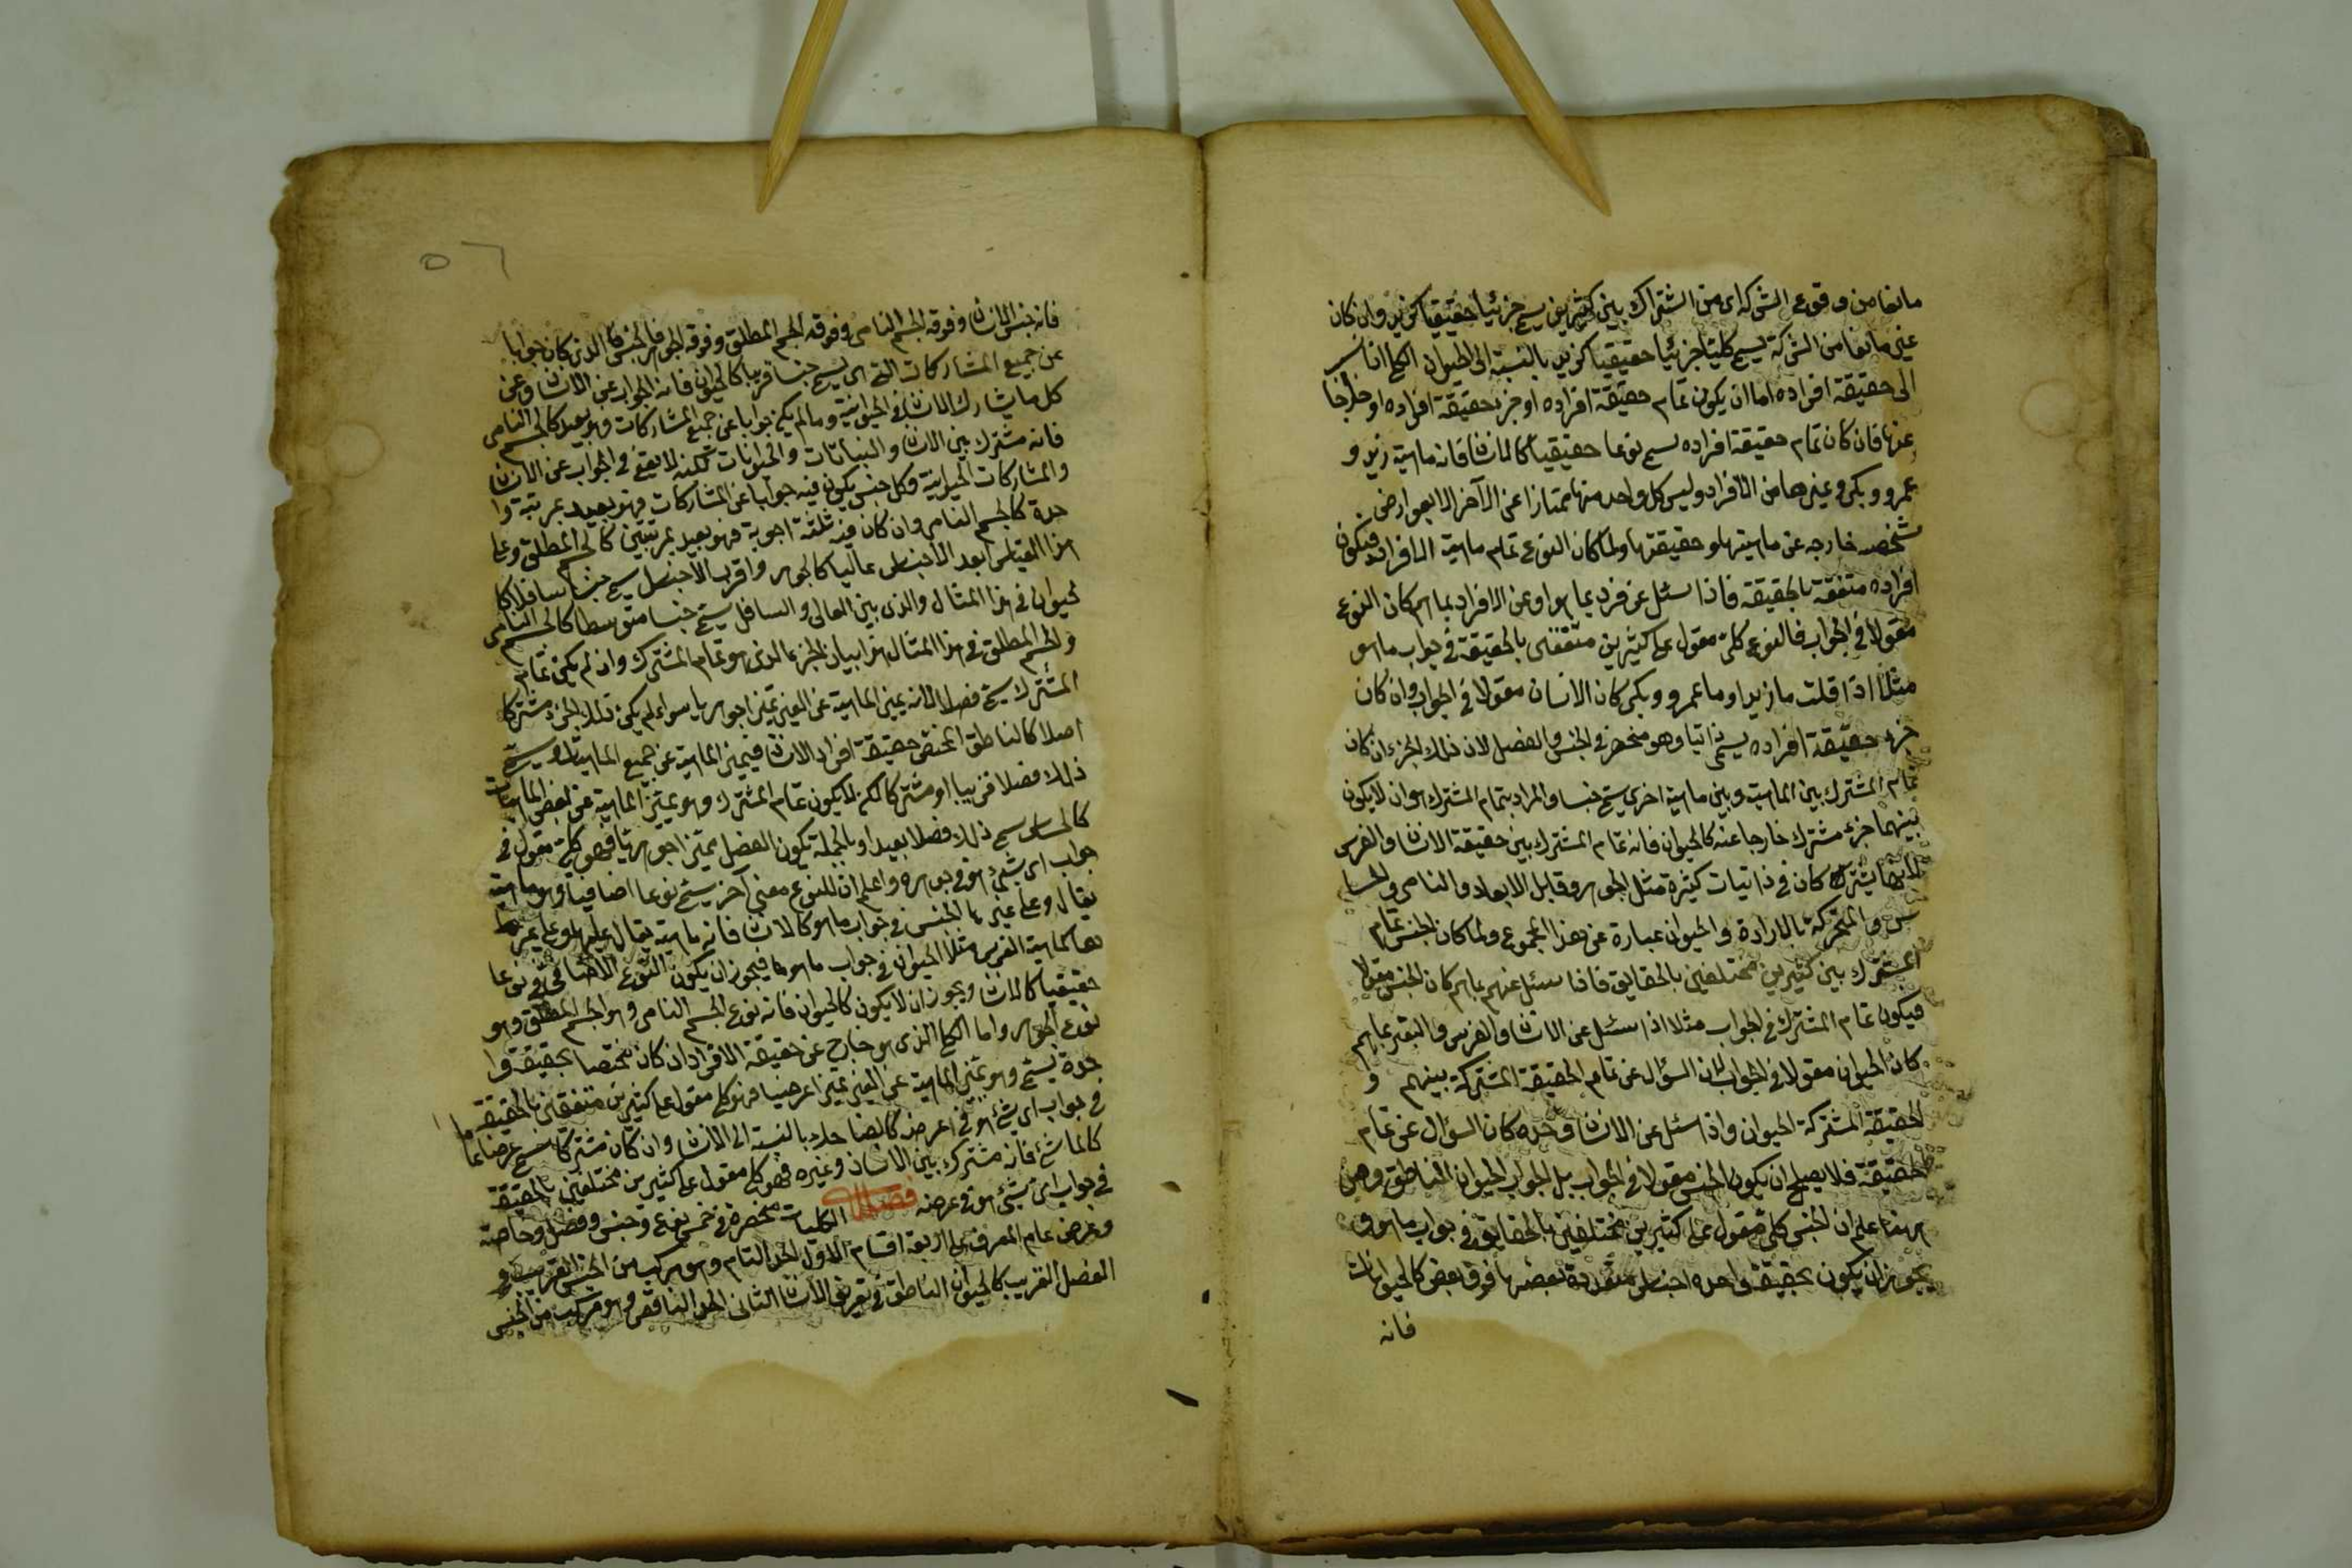 مانعا من وقوع الشركة اى من اشتراك بين كثيرين يسمى جزئيا حقيقيا كزيد وان كان
غير مانعا من الشركة يسمى كليا جزئيا حقيقيا كزيد بالنسبة الى الحيوان الكلى اذا نسب
الى حقيقة افراده اما ان يكون تمام حقيقة افراده او جزء حقيقة افراده او خارجا
عنها فان كان تمام حقيقة افراده يسمى نوعا حقيقيا كالانسان فانه ماهية زيد و
عمرو وبكر وغيرها من الافراد وليس كل واحد منها ممتازا عن الآخر الا بعوارض
شخصه خارجه عن ماهيتها وحقيقتها ولما كان النوع تمام ماهية الافراد فيكون
افراده متفقة بالحقيقة فاذا سئل عن فرد بما هو او عن الافراد بما هم كان النوع
مقولا فى الجواب فالنوع كلى مقول على كثيرين متفقين بالحقيقة فى جواب ما هو
مثلا اذا قلت ما زيد او ما عمرو وبكر كان الانسان مقولا فى الجواب وان كان
جزء حقيقة افراده يسمى ذاتيا وهو منحصر فى الجنس والفصل لان ذلك الجزء ان كان
تمام المشترك بين الماهية وبين ماهية اخرى يسمى جنسا والمراد بتمام المشترك هو ان لا يكون
بينهما جزء مشترك خارجا عنه كالحيوان فانه تمام المشترك بين حقيقة الانسان والفرس
لانهما يشتركان فى ذاتيات كثيرة مثل الجوهر وقابل الابعاد والنامى والحسا
س والمتحركة بالارادة والحيوان عبارة عن هذا المجموع ولما كان الجنس تمام
المشترك بين كثيرين مختلفين بالحقايق فاذا سئل عنهم بما هم كان الجنس مقولا
فيكون تمام المشترك فى الجواب مثلا اذا سئل عن الانسان والفرس والبقر بما هم
كان الحيوان مقولا فى الجواب لان السؤال عن تمام الحقيقة المشتركة بينهم و
الحقيقة المشتركة الحيوان واذا سئل عن الانسان وحده كان السؤال عن تمام
حقيقة فلا يصلح ان يكون الجنس مقولا فى الجواب بل الجواب الحيوان الناطق ومن
ههنا علم ان الجنس كلى مقول على كثيرين مختلفين بالحقايق فى جواب ما هو و
يجوز ان يكون بحقيقة واحده اجناس متعددة بعضها فوق بعض كالحيوانات
فانه
٥٦
فانه جنس الانسان وفوقه الجسم النامى وفوقه الجسم المطلق وفوقه الجوهر فالجنس الذى كان جوابا
عن جميع المشاركات التى يسمى جنسا قريبا كالحيوان فانه الجواب عن الانسان وعن
كل ما يشارك الانسان فى الحيوانية وما لم يكن جوابا عن جميع المشاركات فهو بعيد كالجسم النامى
فانه مشترك بين الانسان والنباتات والحيوانات لكنه لا يقع فى الجواب عن الانسان
والمشاركات الحيوانية وكل جنس يكون فيه جوابا عن المشاركات فهو بعيد بمرتبة وا
حدة كالجسم النامى وان كان فيه ثلثة اجوبة فهو بعيد بمرتبتين كالجسم المطلق وعلى
هذا القياس ابعد الاجناس عاليا كالجوهر واقرب الاجناس يسمى جنسا سافلا كا
لحيوان فى هذا المثال والذى بين العالى والسافل يسمى جنسا متوسطا كالجسم النامى
والجسم المطلق فى هذا المثال هذا بيان الجزء الذى هو تمام المشترك وان لم يكن تمام
المشترك يسمى فصلا لانه يميز الماهية عن الغير تميزا جوهريا سواء لم يكن ذلك الجزء مشتركا
اصلا كالناطق المختص حقيقة افراد الانسان فيميز الماهية عن جميع الماهيات ويسمى
ذلك فصلا قريبا او مشتركا لكنه لا يكون تمام المشترك وهو يميز الماهية عن بعض الماهيات
كالحساس يسمى ذلك فصلا بعيدا وبالجملة يكون الفصل تميزا جوهريا فهو كلى مقول فى
جواب اى شئ هو فى جوهره واعلم ان للنوع معنى آخر يسمى نوعا اضافيا وهو ماهية
يقال وعلى غيرها الجنس فى جواب ما هو كالانسان فانه ماهية يقال عليها وعلى غير
ها كماهية الفرس مثلا الحيوان فى جواب ما هو فيجوز ان يكون النوع الاضافى نوعا
حقيقيا كالانسان ويجوز ان لا يكون كالحيوان فانه نوع الجسم النامى وهو الجسم المطلق وهو
نوع الجوهر واما الكلى الذى هو خارج عن حقيقة الافراد ان كان مختصا بحقيقة وا
حدة يسمى وهو يميز الماهية عن الغير تميزا عرضيا فهو كلى مقول على كثيرين متفقين بالحقيقة
فى جواب اى شئ هو فى عرضه كالضاحك بالنسبة الى الانسان وان كان مشتركا يسمى عرضا عاما
كالماشى فانه مشترك بين الانسان وغيره فهو كلى مقول على كثيرين مختلفين بالحقيقة
فى جواب اى شئ هو فى عرضه فصل الكليات منحصرة فى خمس نوع وجنس وفصل وخاصة
وعرض عام المعرف على اربعة اقسام الاول الحد التام وهو مركب من الجنس القريب و
الفصل القريب كالحيوان الناطق فى تعريف الانسان الثانى الحد الناقص وهو مركب من الجنس